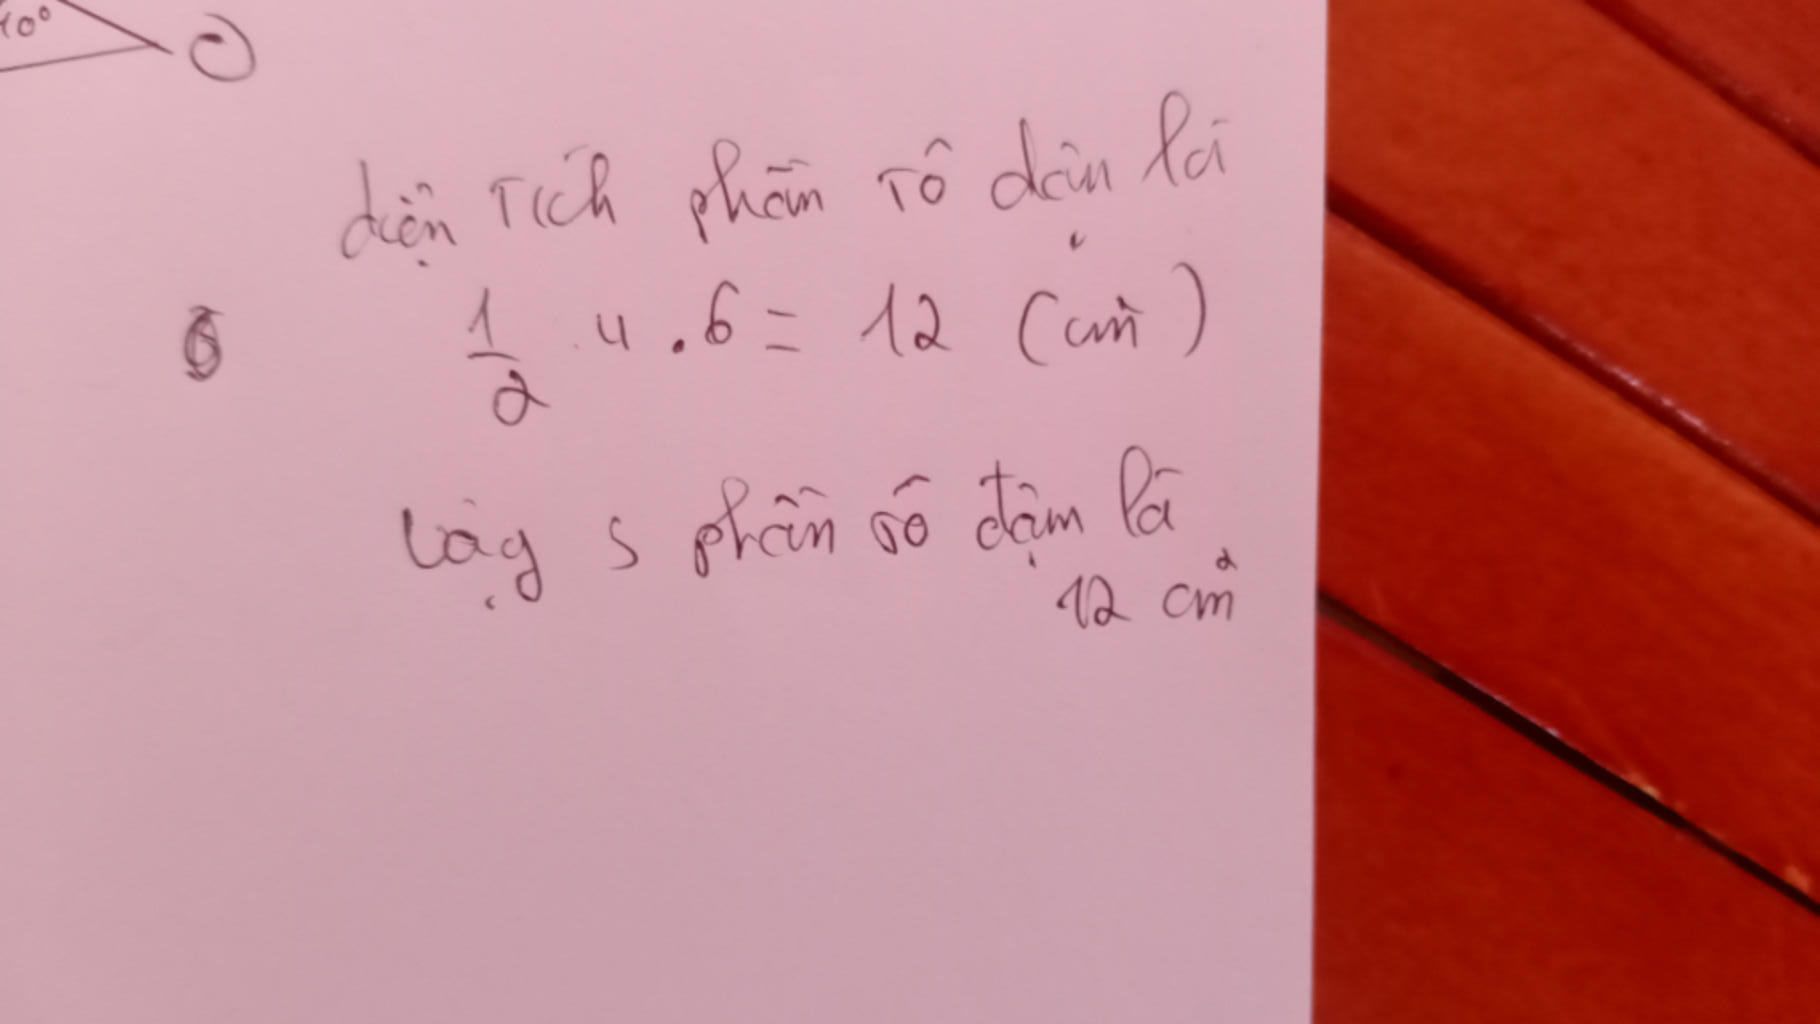 10°
diện tích phần tô đậm là
1/2 . 4 . 6 = 12 (cm²)
Vậy S phần tô đậm là
12 cm²